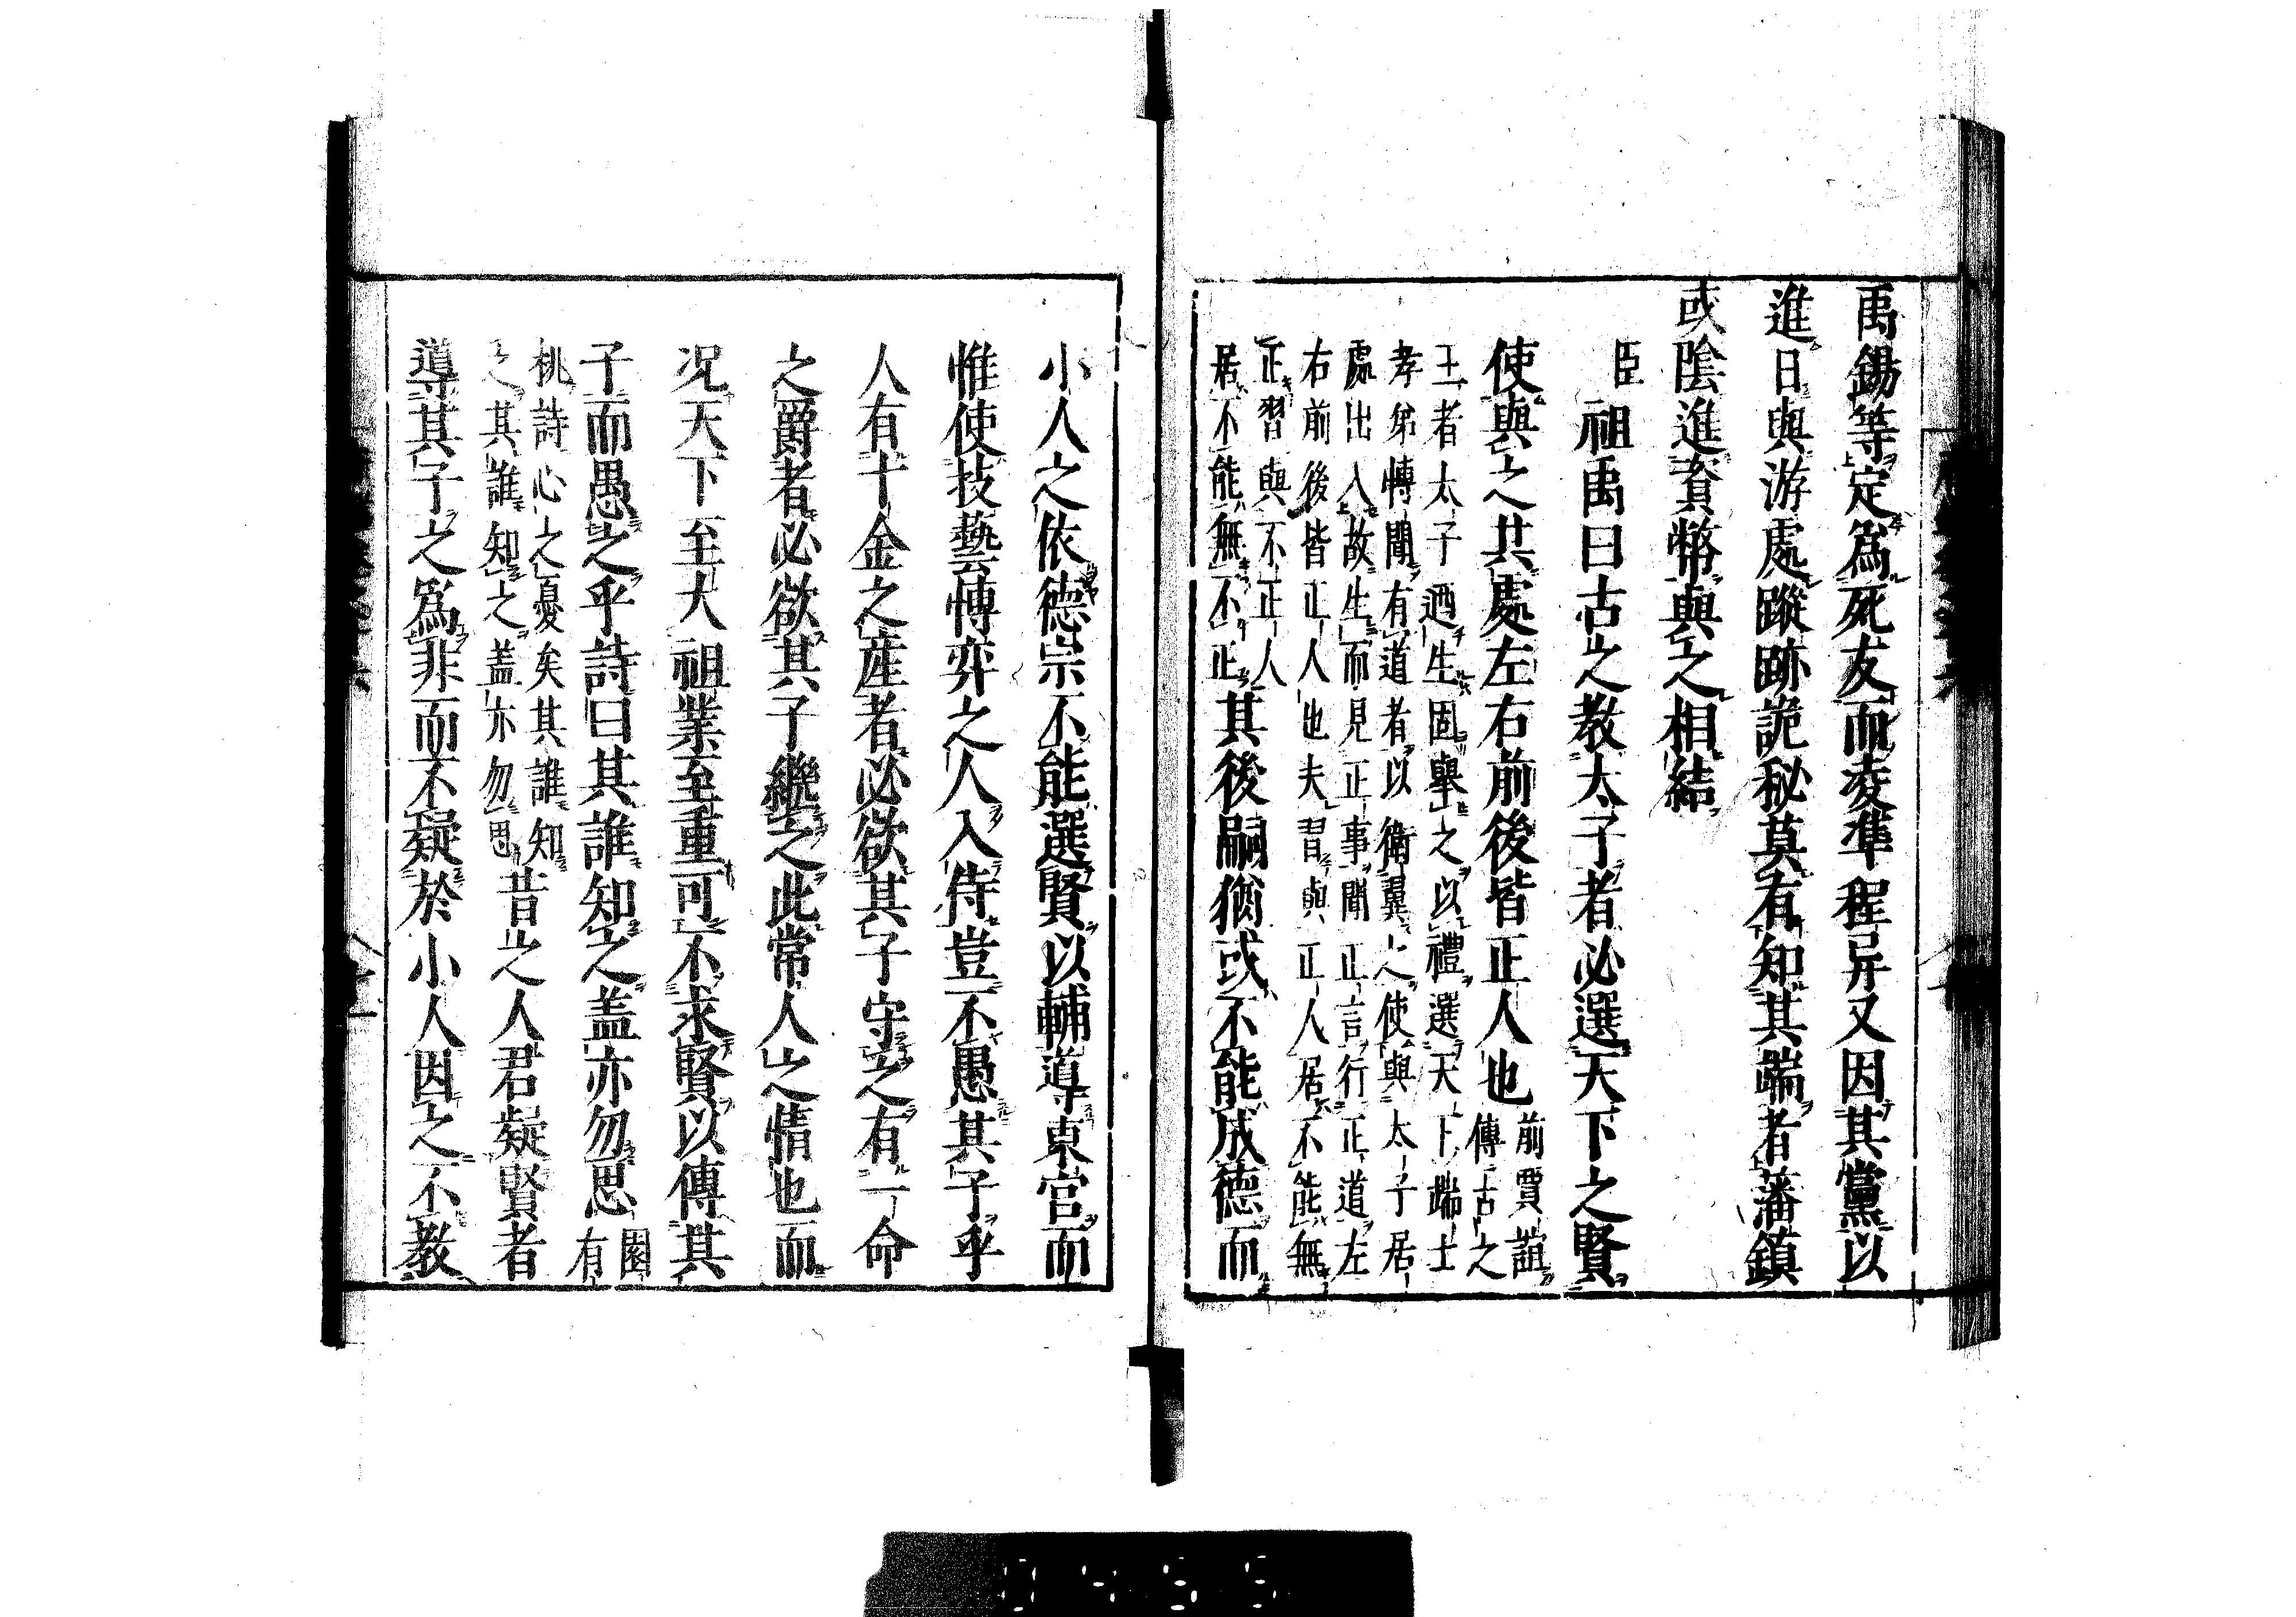 禹錫等定爲死友而凌準程异又因其黨以
進日與游處蹤跡詭秘莫有知其端者藩鎮
或陰進資幣與之相結
臣祖禹曰古之教太子者必選天下之賢
使與之其處左右前後皆正人也
前賈誼
傳古之
王者太子迺生固舉之以禮選天下端士
孝弟愽聞有道者以衛翼之使與太子居
處出入故生而見正事聞正言行正道左
右前後皆正人也夫習與正人居不能無
正習與不正人
居不能無不正
其後嗣猶或不能成德而
小人之依德宗不能選賢以輔導東宫而
惟使技藝愽弈之人入侍豈不愚其子乎
人有十金之産者必欲其子守之有一命
之爵者必欲其子繼之此常人之情也而
况天下至大祖業至重可不求賢以傳其
子而愚之乎詩曰其誰知之盖亦勿思
園
有
桃詩心之憂矣其誰知
之其誰知之盖亦勿思
昔之人君疑賢者
導其子之爲非而不疑於小人因之不教